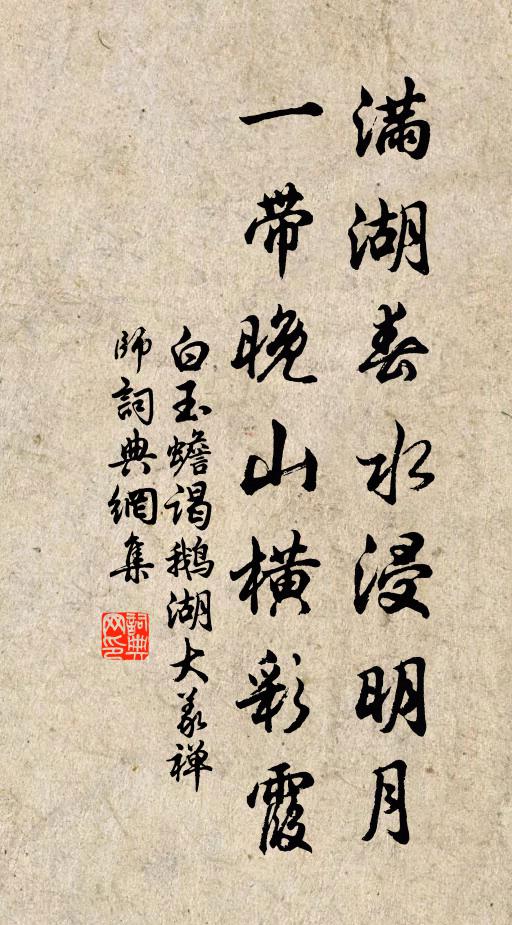 滿湖春水浸明月
一帶晚山橫彩霞
白玉蟾谒鹅湖大义禅
师詞典網集
詞典网印